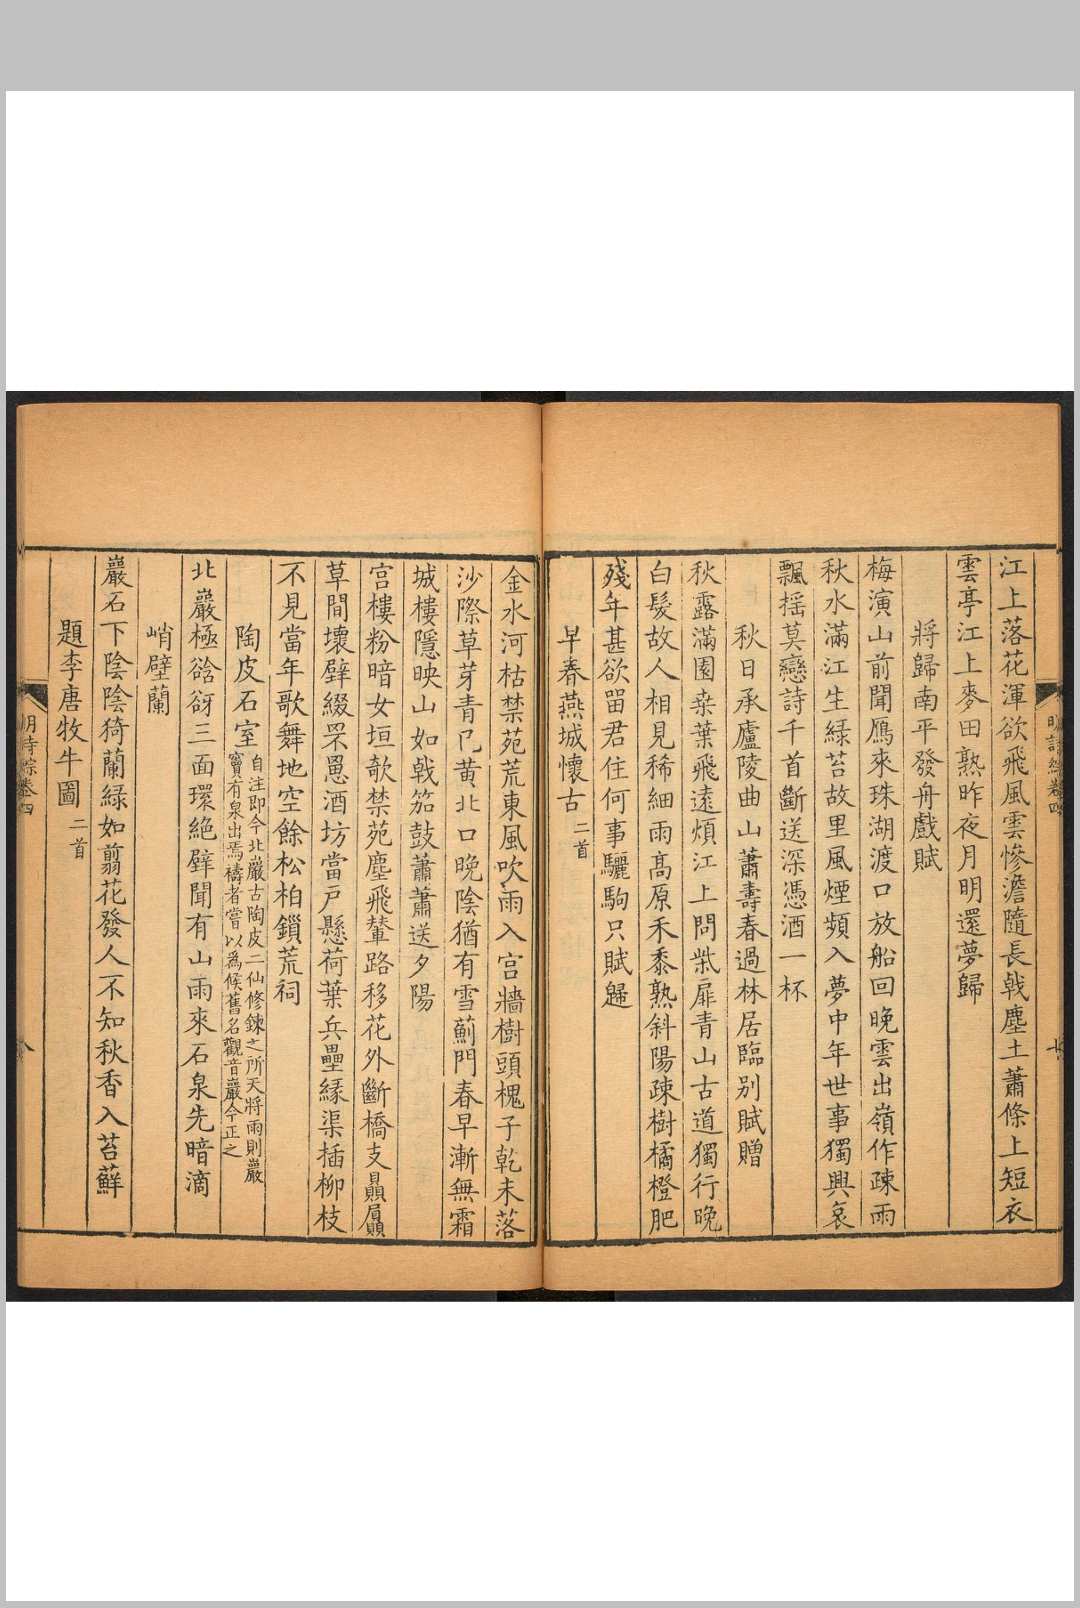 江上落花渾欲飛風雲慘澹隨長戟塵土蕭條上短衣
雲亭江上麥田熟昨夜月明還夢歸
將歸南平發舟戲賦
梅演山前聞鴈來珠湖渡口放船回晚雲出嶺作疎雨
秋水滿江生綠苔故里風煙頻入夢中年世事獨興哀
飄揺莫戀詩千首斷送深憑酒一杯
秋日承廬陵曲山蕭壽春過林居臨别賦贈
秋露滿園桒葉飛遠煩江上問柴扉青山古道獨行晚
白髮故人相見稀細雨高原禾黍熟斜陽疎樹橘橙肥
殘年甚欲留君住何事驪駒只賦歸
早春燕城懷古二首
金水河枯禁苑荒東風吹雨入宫牆樹頭槐子乾未落
沙際草芽青已黄北口晚陰猶有雪薊門春早漸無霜
城樓隱映山如戟笳鼓蕭蕭送夕陽
宫樓粉暗女垣欹禁苑塵飛輦路移花外斷橋支贔屭
草間壞壁綴罘罳酒坊當户懸荷葉兵壘緣渠插柳枝
不見當年歌舞地空餘松柏鎖荒祠
陶皮石室自注即今北巖古陶皮二仙修鍊之所天將雨則巖
竇有泉出焉禱者嘗以爲候舊名觀音巖今正之
北巖極谽谺三面環絶壁聞有山雨來石泉先暗滴
峭壁蘭
巖石下陰陰猗蘭緑如翦花發人不知秋香入苔蘚
題李唐牧牛圖二首
明詩綜卷四
七
明詩綜卷四